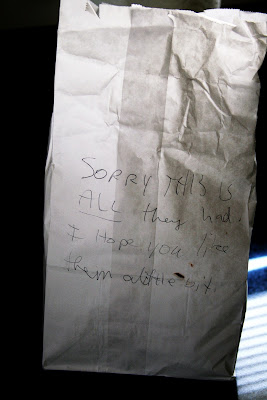 SORRY THIS IS
ALL they had.
I Hope you like
them alittle bit.